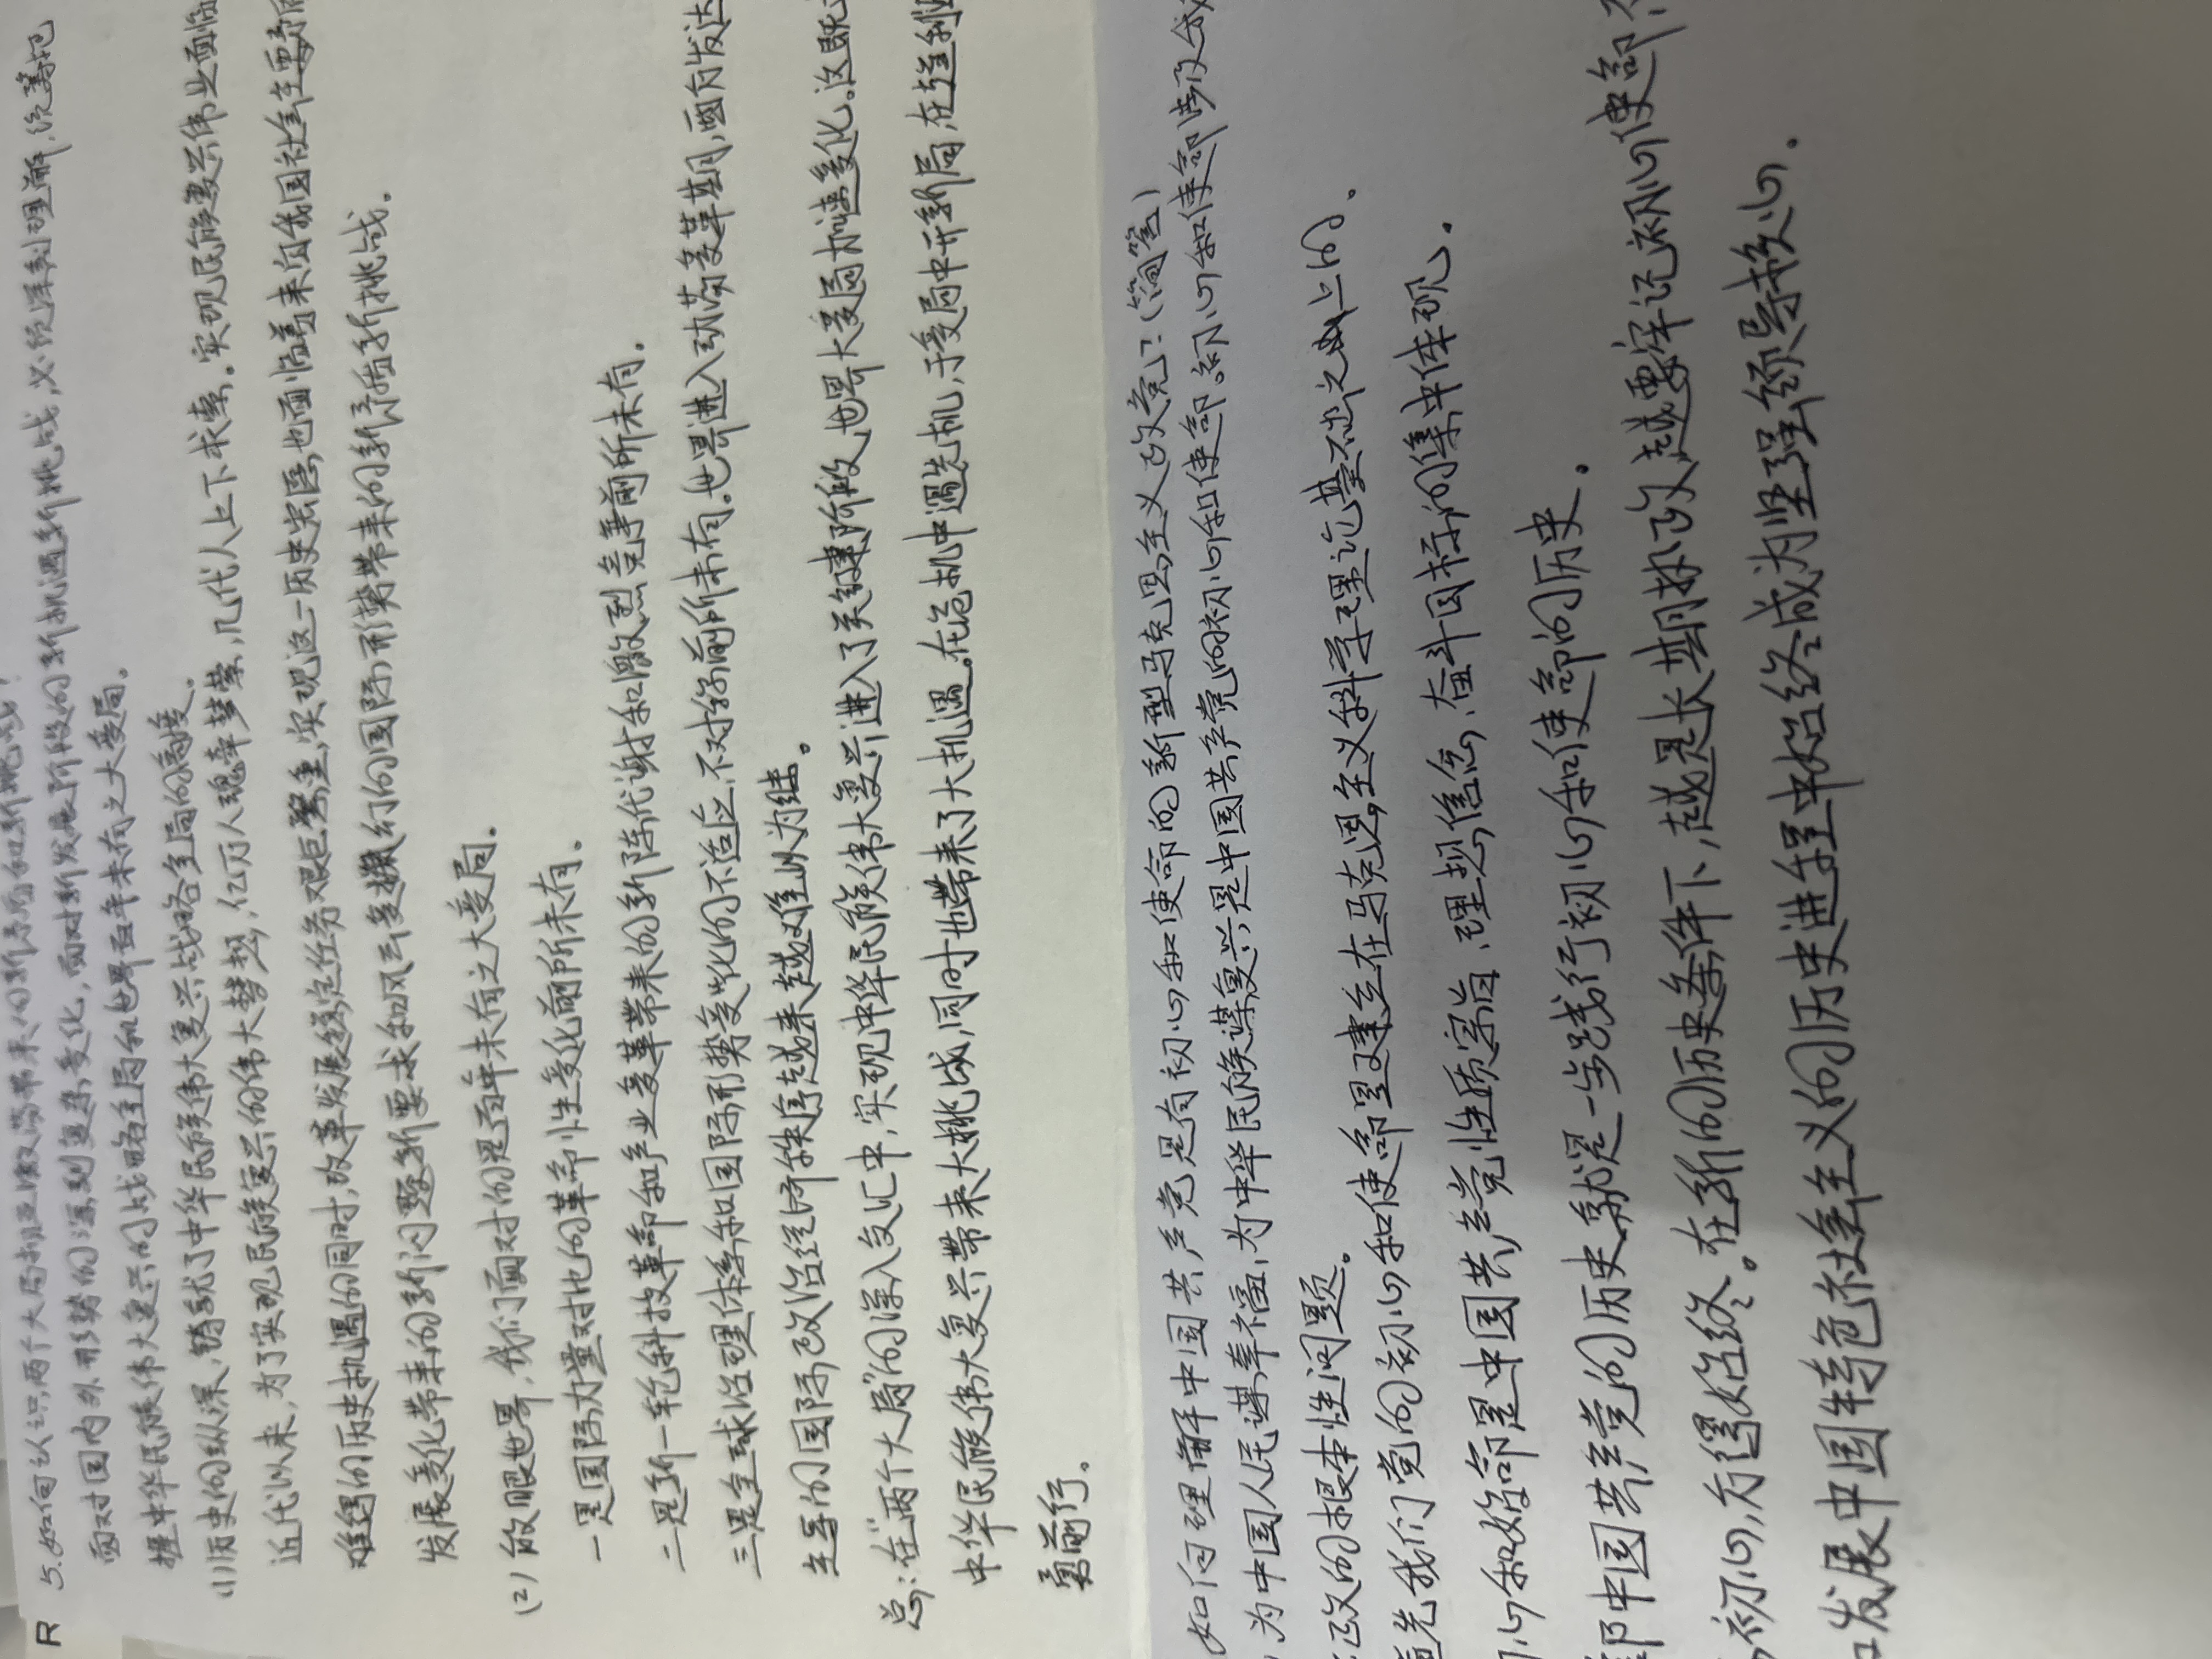 R
5.如何认识两个大局相互激荡带来的新矛盾和新挑战?
面对国内外形势的深刻复杂变化,面对新发展阶段的新机遇新挑战,必须深刻理解,统筹把
握中华民族伟大复兴的战略全局和世界百年未有之大变局。
(1)历史的纵深,铸就了中华民族伟大复兴战略全局的高度。
近代以来,为了实现民族复兴的伟大梦想,亿万人魂牵梦萦,几代人上下求索。实现民族复兴伟业面临
难得的历史机遇的同时,改革发展稳定任务艰巨繁重,实现这一历史宏愿,也面临着来自我国社会主要矛盾
发展变化带来的新问题新要求和风云变换幻的国际形势带来的新矛盾新挑战。
(2)放眼世界,我们面对的是百年未有之大变局。
一是国际力量对比的革命性变化前所未有。
二是新一轮科技革命和产业变革带来的新陈代谢和激烈竞争前所未有。
三是全球治理体系和国际形势变化的不适应、不对称前所未有。世界进入动荡变革期,西方发达
主导的国际政治经济秩序越来越难以为继。
总:在“两个大局”的深入交汇中,实现中华民族伟大复兴进入了关键阶段,世界大变局加速变化。这既
中华民族伟大复兴带来大挑战,同时也带来了大机遇。在危机中遇先机,于变局中开新局,在
勇前行。
如何理解中国共产党是有初心和使命的新型马克思主义政党?(简答)
为中国人民谋幸福、为中华民族谋复兴是中国共产党的初心和使命。初心和使命
政的根本性问题。
首先我们党的初心和使命是建立在马克思主义科学理论基础之上的。
心和使命是中国共产党性质宗旨、理想信念、奋斗目标的集中体现。
中国共产党的历史,就是一步践行初心和使命的历史。
初心,方得始终。在新的历史条件下,越是长期执政,越要牢记初心使命
发展中国特色社会主义的历史进程中始终成为坚强领导核心。